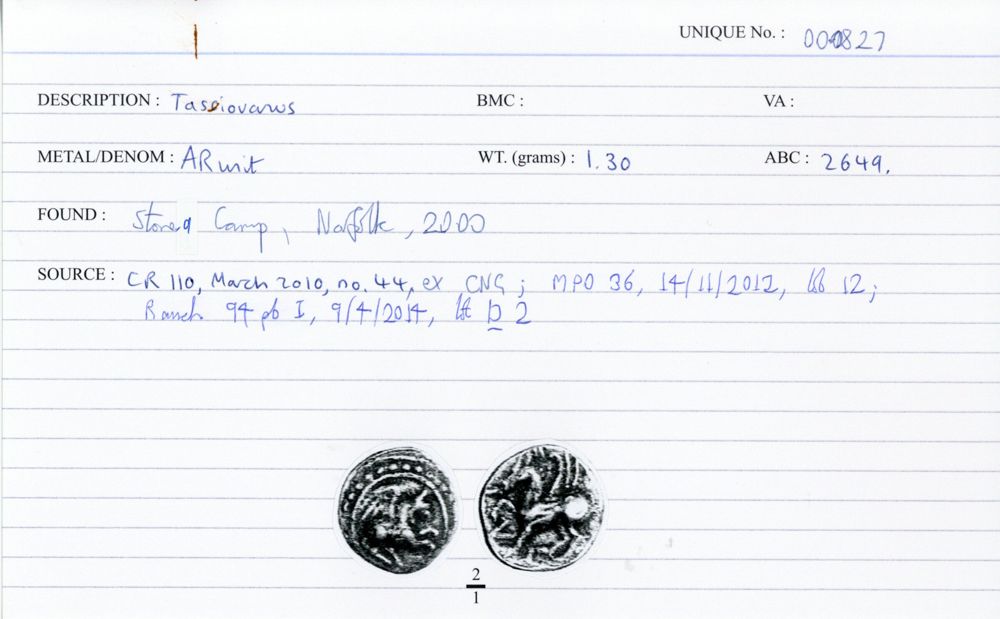 UNIQUE No. : 000827
DESCRIPTION : Tasciovanus BMC : VA :
METAL/DENOM : AR unit WT. (grams) : 1.30 ABC : 2649.
FOUND : Stonea Camp, Norfolk, 2000
SOURCE : CR 110, March 2010, no. 44, ex CNG ; MPO 36, 14/11/2012, 12 ;
94 I, 9/4/2014, D 2
2
1